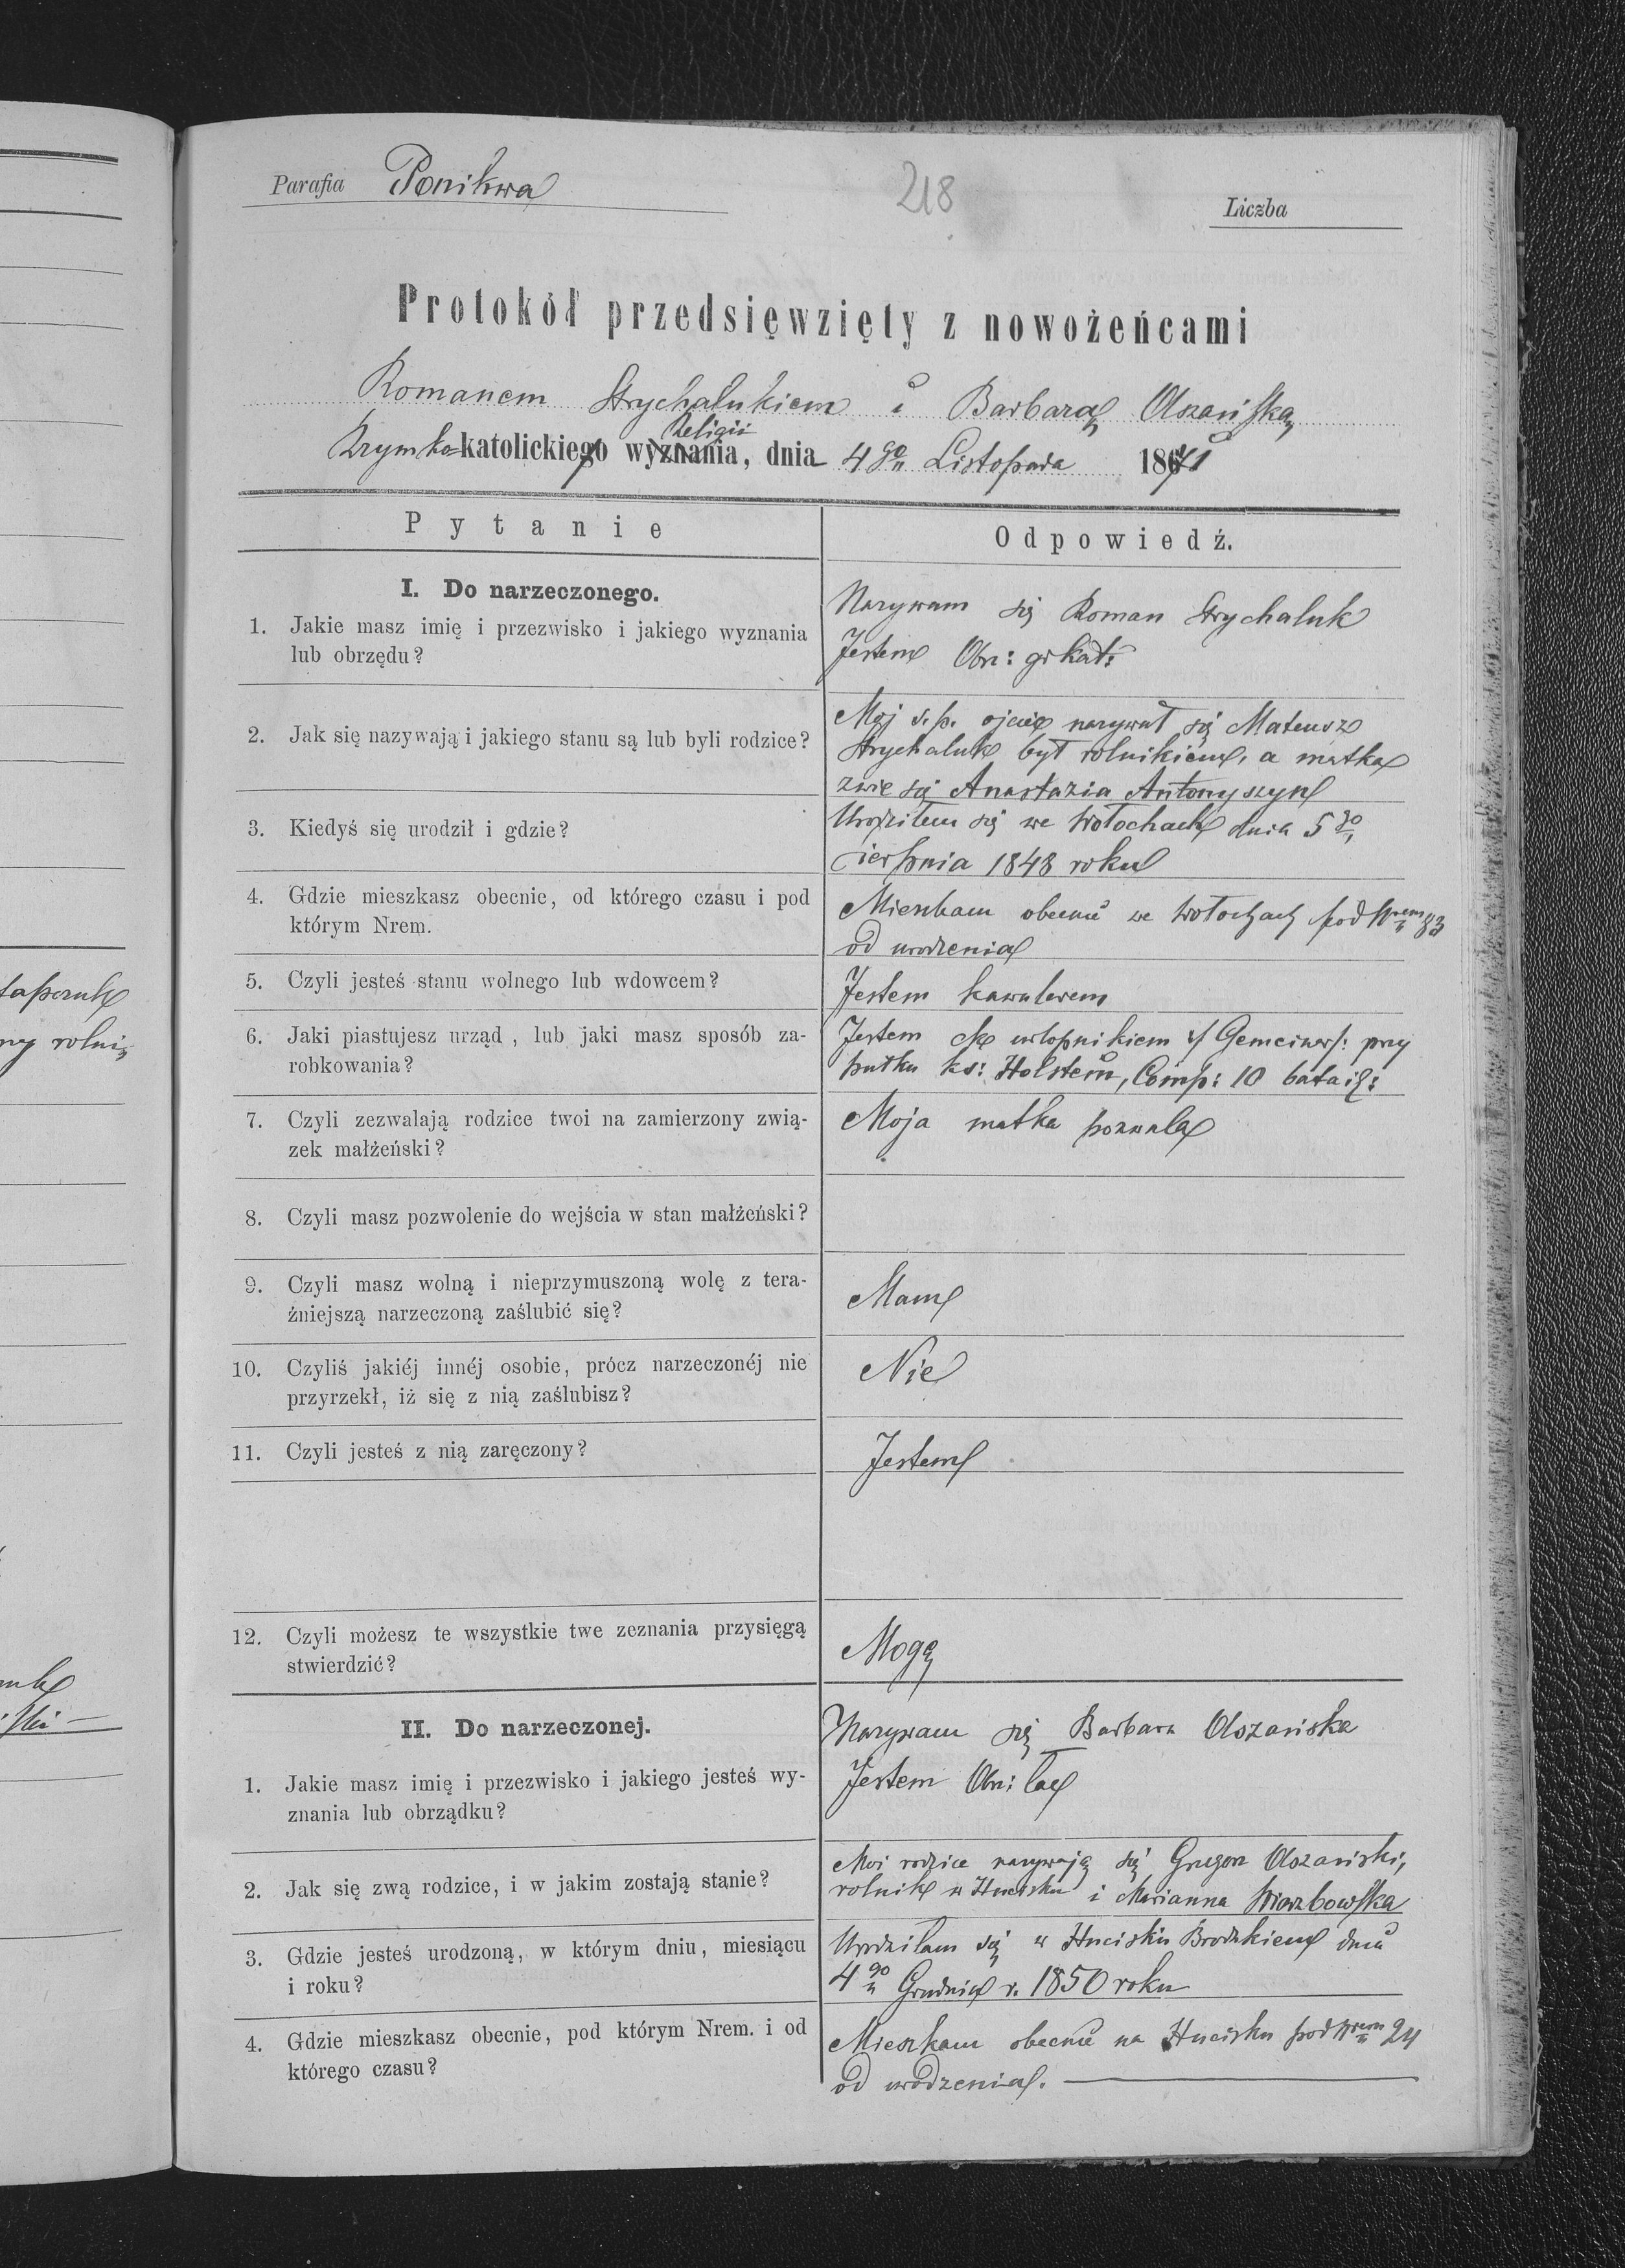 Parafia Ponikwa
218
Liczba
Protokół przedsięwzięty z nowożeńcami
Romanem Strychalukiem i Barbarą Olszańską
Rzymko-katolickiego wyznania, dnia 4go Listopada 1871
Religii
Pytanie
Odpowiedź.
I. Do narzeczonego.
1. Jakie masz imię i przezwisko i jakiego wyznania
lub obrzędu?
Nazywam się Roman Strychaluk
Jestem Obrz: gr kat:
2. Jak się nazywają i jakiego stanu są lub byli rodzice?
Moj ś. p. ojciec nazywał się Mateusz
Strychaluk był rolnikiem, a matka
zwie się Anastazia Antonyszyn
3. Kiedyś się urodził i gdzie?
Urodziłem się we Wołochach dnia 5go
Sierpnia 1848 roku
4. Gdzie mieszkasz obecnie, od którego czasu i pod
którym Nrem.
Mieszkam obecnie we Wołochach pod Nrem 83
od urodzenia
5. Czyli jesteś stanu wolnego lub wdowcem?
Jestem kawalerem
6. Jaki piastujesz urząd, lub jaki masz sposób za-
robkowania?
Jestem urlopnikiem Gemeiner przy
pułku ks: Holstein, Comp: 10 batail:
7. Czyli zezwalają rodzice twoi na zamierzony zwią-
zek małżeński?
Moja matka pozwala
8. Czyli masz pozwolenie do wejścia w stan małżeński?
9. Czyli masz wolną i nieprzymuszoną wolę z tera-
źniejszą narzeczoną zaślubić się?
Mam
10. Czyliś jakiéj innéj osobie, prócz narzeczonéj nie
przyrzekł, iż się z nią zaślubisz?
Nie
11. Czyli jesteś z nią zaręczony?
Jestem
12. Czyli możesz te wszystkie twe zeznania przysięgą
stwierdzić?
Mogę
II. Do narzeczonej.
1. Jakie masz imię i przezwisko i jakiego jesteś wy-
znania lub obrządku?
Nazywam się Barbara Olszańska
Jestem Obrz: łac
2. Jak się zwą rodzice, i w jakim zostają stanie?
Moi rodzice nazywają się Grzegorz Olszański,
rolnik w Hucisku i Marianna Wierzbowska
3. Gdzie jesteś urodzoną, w którym dniu, miesiącu
i roku?
Urodziłam się w Hucisku Brodzkiem dnia
4go Grudnia r. 1850 roku
4. Gdzie mieszkasz obecnie, pod którym Nrem. i od
którego czasu?
Mieszkam obecnie na Hucisku pod Nrem 24
od urodzenia.